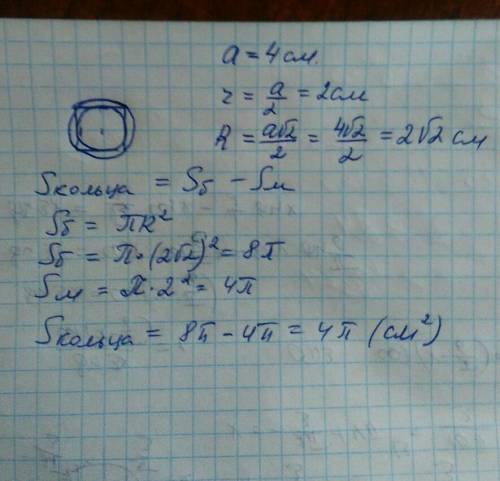 a = 4 см.
r = a/2 = 2 см
R = a√2/2 = 4√2/2 = 2√2 см
Sкольца = Sб − Sм
Sб = πR²
Sб = π·(2√2)² = 8π
Sм = π·2² = 4π
Sкольца = 8π − 4π = 4π (см²)